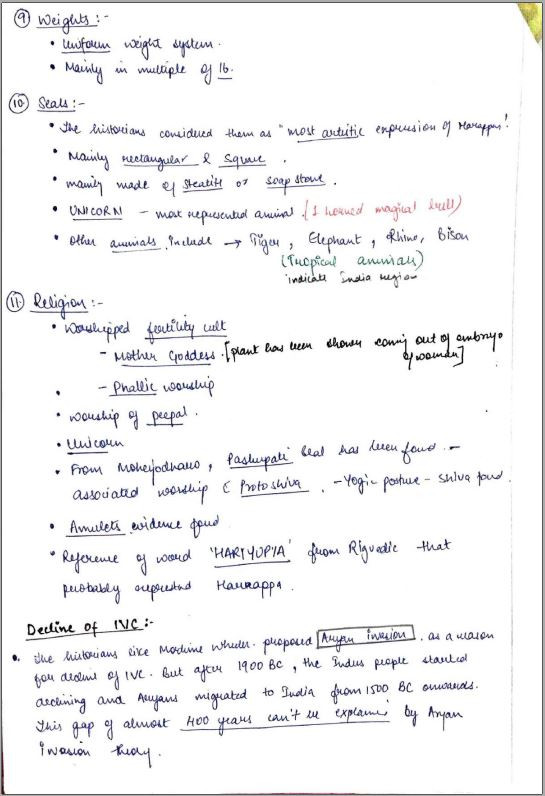 ⑨ Weights :-
• Uniform weight system.
• Mainly in multiple of 16.
⑩ Seals :-
• The historians considered them as "most artistic expression of Harappan'.
• Mainly rectangular & Square.
• mainly made of steatite or soap stone.
• UNICORN - most represented animal. (1 horned magical bull)
• Other animals include → Tiger, Elephant, Rhino, Bison
(Tropical animals)
indicate India region
⑪ Religion :-
• Worshipped fertility cult
- Mother Goddess. [plant has been shown coming out of embryo
of woman]
• - Phallic worship
• worship of peepal.
• Unicorn
• From Mohenjodharo, Pashupati seal has been found -
associated worship Proto shiva. - Yogic posture - Shiva found.
• Amulets evidence found.
• Reference of word 'HARIYUPIA' from Rigvedic that
probably represented Harrappa.
Decline of IVC :-
• The historians like Mortimer Wheeler proposed Aryan invasion as a reason
for decline of IVC. But after 1900 BC, the Indus people started
declining and Aryans migrated to India from 1500 BC onwards.
This gap of almost 400 years can't be explained by Aryan
invasion theory.